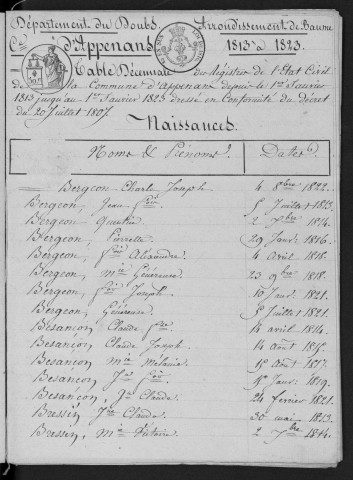 Département du Doubs. Arrondissement de Baume
Cne d'Appenans 1813 à 1823.
Table Décennale des Registres de l'Etat Civil
de la Commune d'Appenans depuis le 1er Janvier
1813 jusqu'au 1er Janvier 1823 dressé en Conformité du décret
du 20 Juillet 1807.
Naissances.
Noms & Prénoms. Dates.
Bergeon Charle Joseph 4 8bre 1822.
Bergeon, Jean-
Bergeon Quentin 2 1814.
Bergeon, Pierrette 29 Janv. 1816.
Bergeon, Alexandre 4 avril 1818.
Bergeon, Mie Généreuse 23 9bre 1818.
Bergeon, Joseph 10 Janr. 1821.
Bergeon, Généreuse 5 Juillet 1821.
Besançon Claude 4 avril 1814.
Besançon Claude Joseph 14 août 1815.
Besançon Mie Mélanie 15 Août 1817.
Besançon Janr. 1819.
Besançon, Claude 24 février 1821.
Bressin, Claude 30 mai 1813.
Bressin, 2 1814.